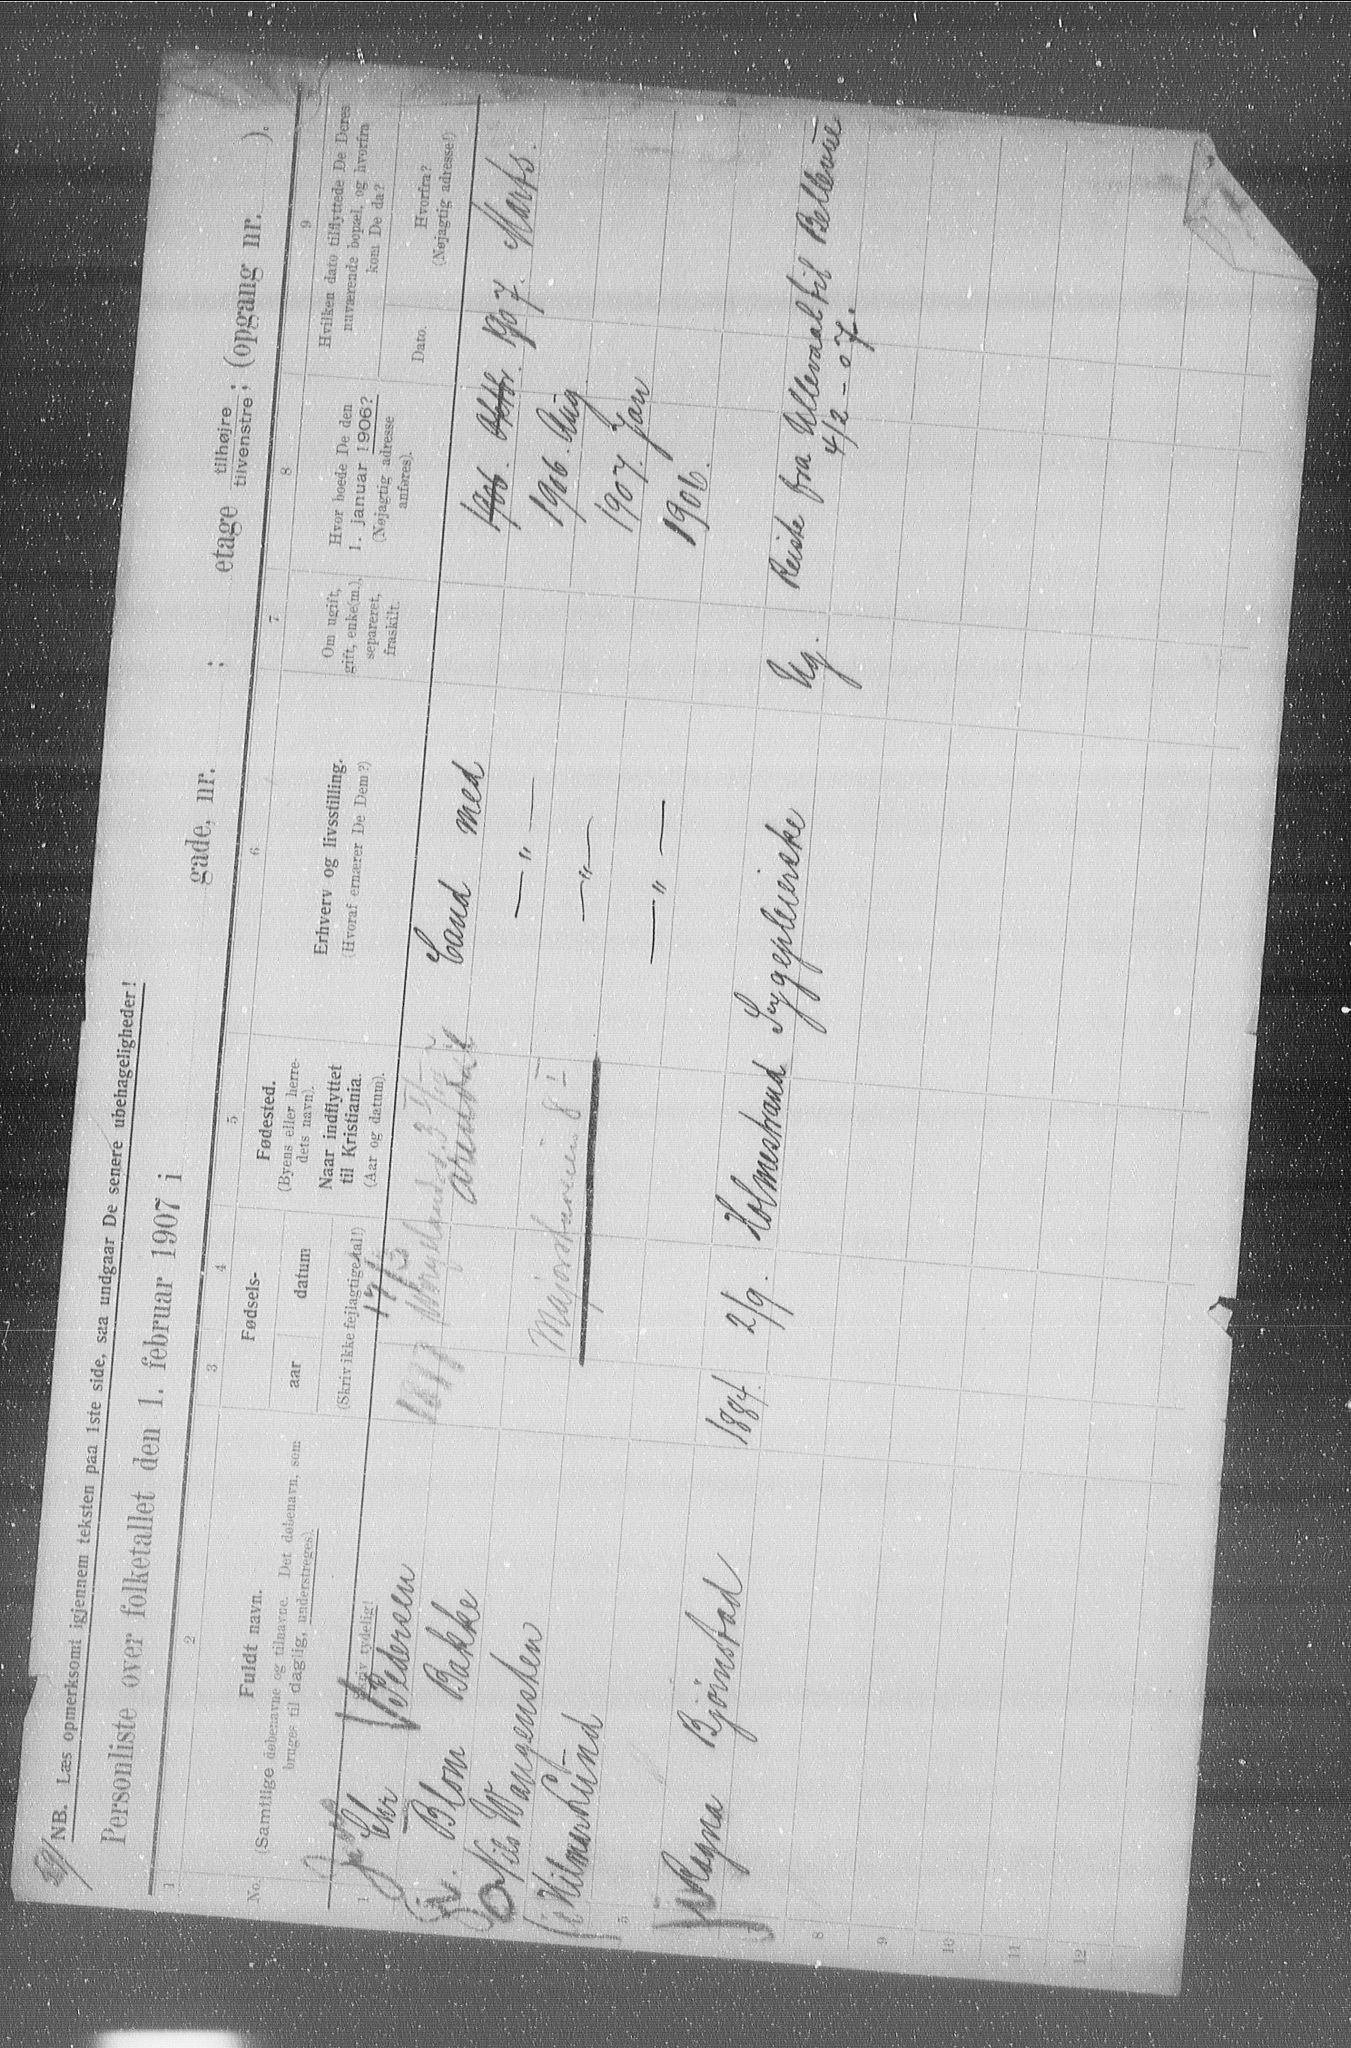 NB. Læs opmerksomt igjennem teksten paa 1ste side, saa undgaar De senere ubehageligheder!
Personliste over folketallet den 1. februar 1907 i
gade, nr. ; etage tilhøjre tilvenstre; (opgang nr. ).
1 2 3 4 5 6 7 8 9
No.
Fuldt navn.
(Samtlige døbenavne og tilnavne. Det døbenavn, som
bruges til daglig, understreges).
Skriv tydelig!
Fødsels-
aar datum
(Skriv ikke fejlagtige tal!)
Fødested.
(Byens eller herre-
dets navn).
Naar indflyttet
til Kristiania.
(Aar og datum).
Erhverv og livsstilling.
(Hvoraf ernærer De Dem?)
Om ugift,
gift, enke(m.),
separeret,
fraskilt.
Hvor boede De den
1. januar 1906?
(Nøjagtig adresse
anføres).
Hvilken dato tilflyttede De Deres
nuværende bopæl, og hvorfra
kom De da?
Dato.
Hvorfra?
(Nøjagtig adresse!)
1 Chr Pedersen 17/3 Cand med 1906. Oktbr. 1907. Marts.
Blom Bakke Arendal — " — 1906. Aug
Nils Waugensten — " — 1907. Jan
Hilmar Lund Majorstuveien 8 I — " — 1906.
5
Ragna Bjørnstad 1884. 2/9. Holmestrand Sygepleierske Ug. Reiste fra Ullevaal til Bellevue
4/2 - 07.
7
8
9
10
11
12